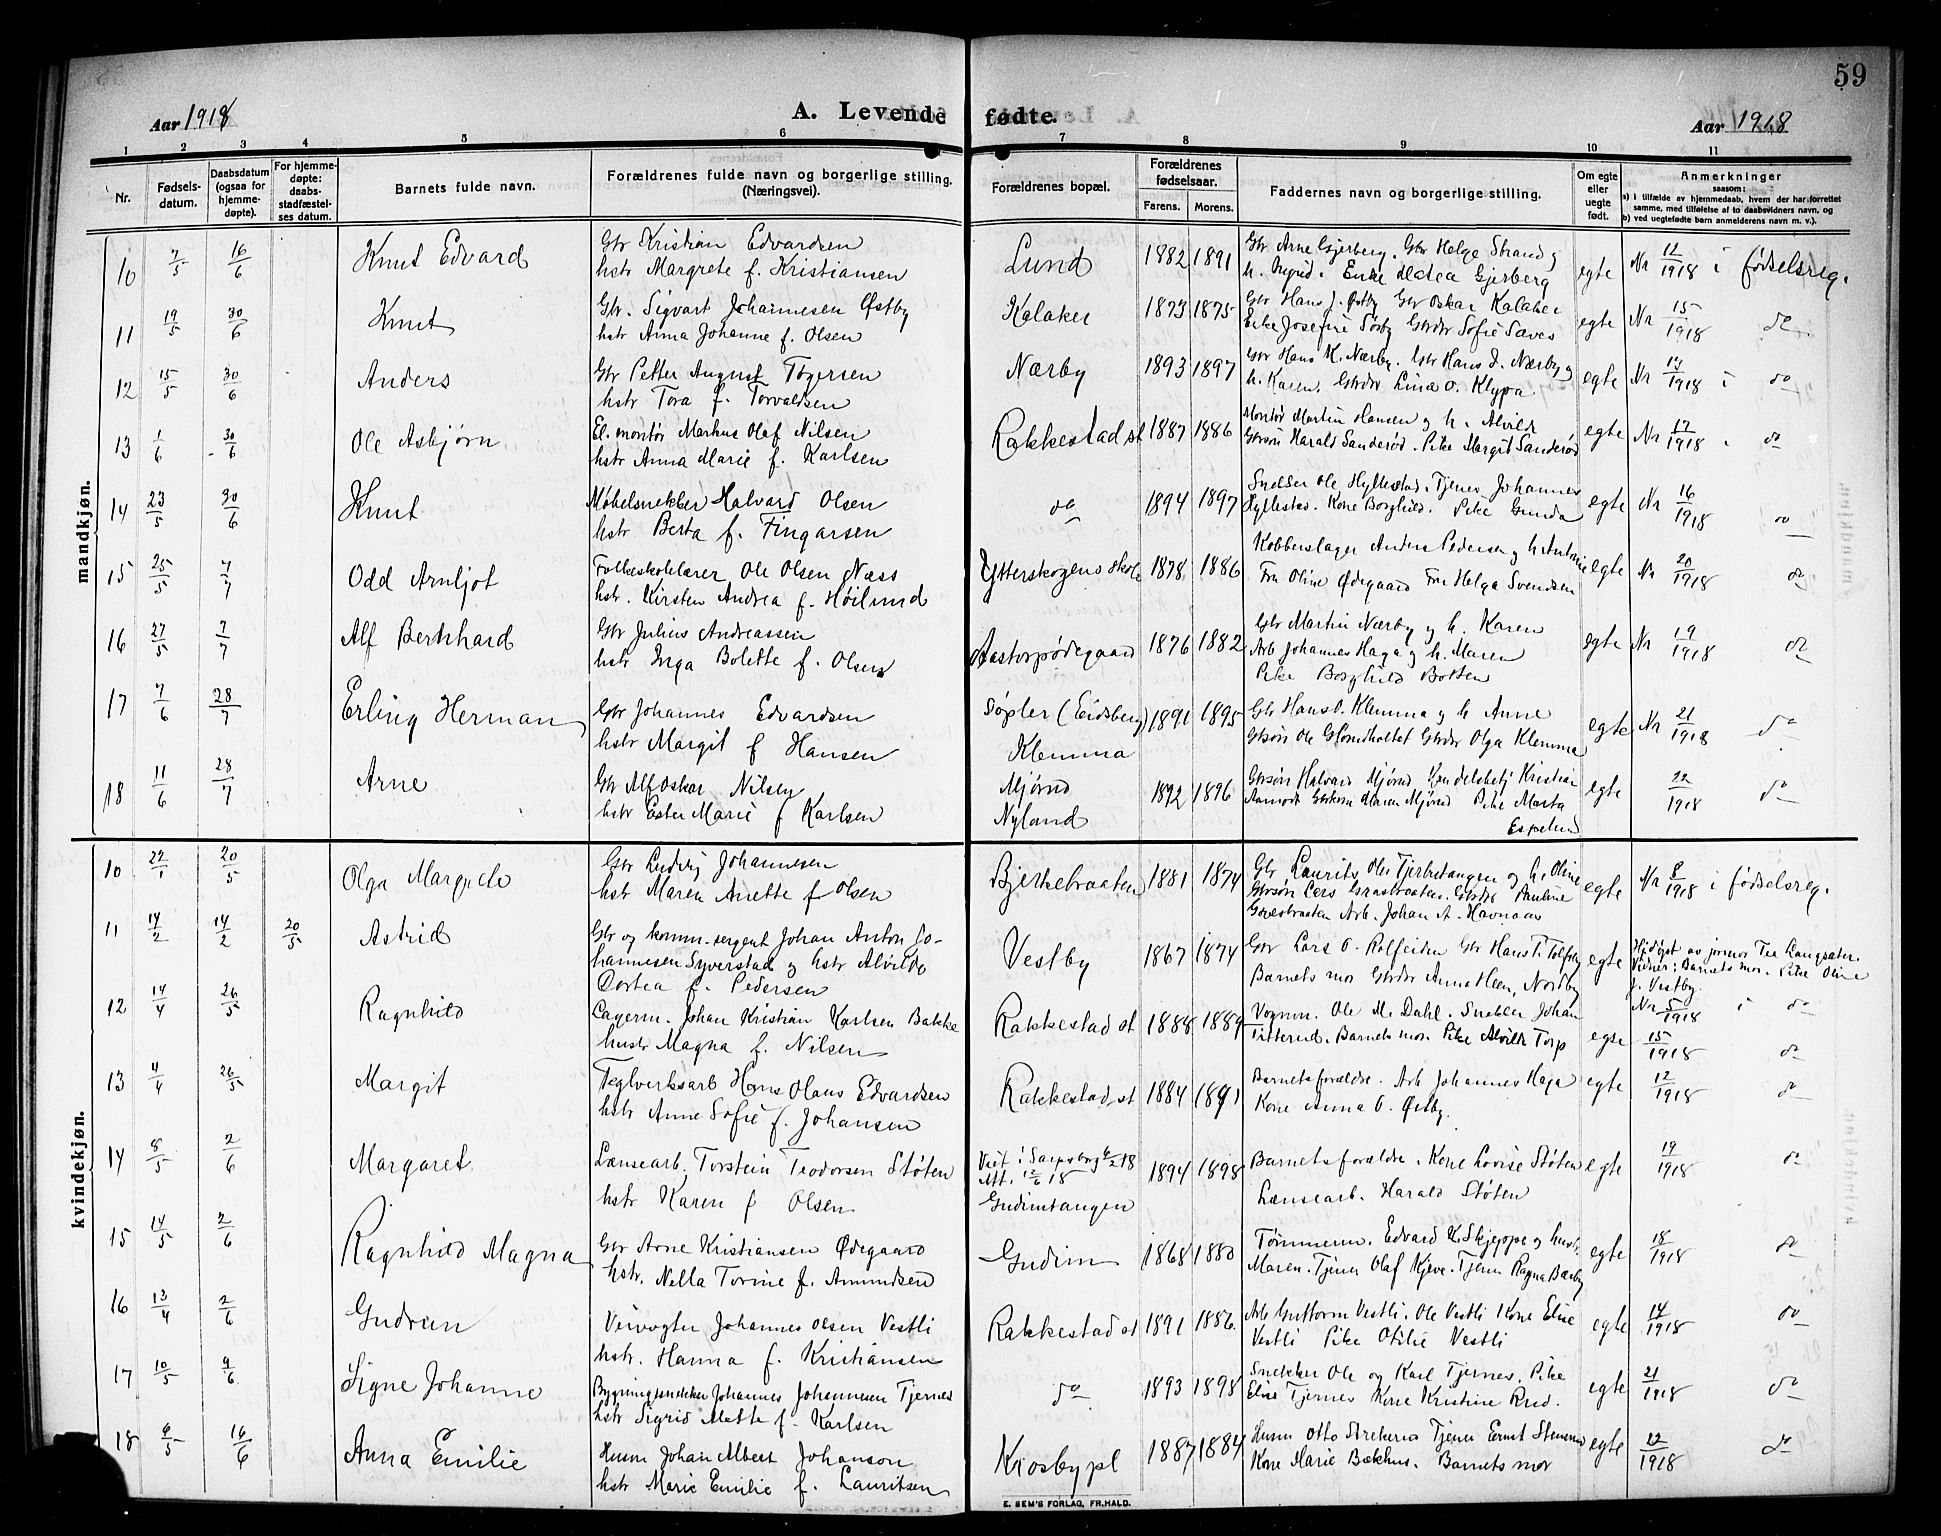 59
Aar 1918 A. Levende fødte. Aar 1918
1 2 3 4 5 6 7 8 9 10 11
Nr. Fødsels-datum. Daabsdatum (ogsaa for hjemme-døpte). For hjemme-døpte: daabs-stadfæstel-ses datum. Barnets fulde navn. Forældrenes fulde navn og borgerlige stilling. (Næringsvei). Forældrenes bopæl. Forældrenes fødselsaar. Farens. Morens. Faddernes navn og borgerlige stilling. Om egte eller uegte født. Anmerkninger saasom: a) i tilfælde av hjemmedaab, hvem der har forrettet samme, med tilføielse af to daabsvidners navn, og b) ved uegtefødte barn anmelderens navn m. v.).
mandkjøn.
10 7/5 16/6 Knut Edvard Gbr Kristian Edvardsen Lund 1882 1891 Gbr Arne Gjerberg. Gbr Helge Strand og egte Nr 12/1918 i fødselsreg.
hstr Margrete f. Kristiansen h. Ingrid. Enke Gjerberg
11 19/5 30/6 Knut Gbr. Sigvart Johannesen Østby Kalaker 1873 1875 Gbr Hans J. Østby Gbr Oskar Kalaker egte Nr 15/1918 do
hstr Anna Johanne f. Olsen Josefine Sofie
12 15/5 30/6 Anders Gbr Petter August Tøgersen Nærby 1893 1897 Gbr Hans K. Nærby. Gbr Hans J. Nærby og egte Nr 13/1918 i do
hstr Tora f. Torvaldsen h. Karen. Gbrdtr Lina O. Klypa
13 1/6 30/6 Ole Asbjørn El. montør Markus Olaf Nilsen Rakkestad st 1887 1886 Montør Martin Hansen og h. Alvilde egte Nr 17/1918 do
hstr Anna Marie f. Karlsen Gbrsøn Harald Sanderød. Pike Margit Sanderød
14 23/5 30/6 Knut Møbelsnekker Halvard Olsen do 1894 1897 Ole Hyllestad. Tjener Johannes egte Nr 16/1918 do
hstr Berta f. Fingarsen Hyllestad. Kone Borghild. Pike Gunda
15 25/5 7/7 Odd Arnljot Folkeskolelærer Ole Olsen Næss Ytterskogens skole 1878 1886 Kobberslager Anders Pedersen og h. egte Nr 20/1918 do
hstr. Kirsten Andrea f. Høilund Fru Oline Ødegaard Fru Helga Svendsen
16 27/5 7/7 Alf Bernhard Gbr Julius Andreassen Aastorpødegaard 1876 1882 Gbr Martin Nærby og h. Karen egte Nr 19/1918 do
hstr Inga Bolette f. Olsen Arb Johannes Haga og h. Maren
Pike Borghild
17 7/6 28/7 Erling Herman Gbr Johannes Edvardsen Søpler (Eidsberg) 1891 1895 Gbr Hans O. Klemma og h Anne egte Nr 21/1918 do
hstr Margit f Hansen Klemma Gbrsøn Ole Glomsholtet Gbrdtr Olga Klemma
18 11/6 28/7 Arne Gbr Alf Oskar Nilsen Mjørud 1892 1896 Gbrsøn Halvard Mjørud Kristian egte 22/1918 do
hstr Ester Marie f Karlsen Nyland Maren Mjørud Pike Marta
Espelund
kvindekjøn.
10 22/1 20/5 Olga Margrete Gbr Ludvig Johannesen Bjerkebraaten 1881 1874 Gbr Laurits Ole Tjerbutangen og h. Oline egte Nr 8/1918 i fødselsreg.
hstr Maren Anette f Olsen Gbrsøn Lars Graasbraaten. Gbrdtr Pauline
Graasbraaten Arb. Johan A. Havnaas
11 14/2 14/2 20/5 Astrid Gbr og komm. sergent Johan Anton Jo- Vestby 1867 1874 Gbr Lars O. Gbr Hans T. egte Hjdøpt av jormor Tea Langsæter.
hannesen Syverstad og hstr Alvilde Barnets mor Gbrdtr Anna Heen, Nordby Vidner: Barnets mor. Pike Oline
Dortea f. Pedersen J. Vestby.
12 14/4 26/5 Ragnhild Lagerm. Johan Kristian Karlsen Bakke Rakkestad st 1888 1889 Vognm. Ole M. Dahl. Snekker Johan egte Nr 5/1918 i do
hustr Magna f. Nilsen Titterud. Barnets mor. Pike Alvilde Torp 15/1918 do
13 4/4 26/5 Margit Teglverksarb Hans Olaus Edvardsen Rakkestad st 1884 1891 Barnets forældre. Arb Johannes Haga egte 12/1918 do
hstr Anne Sofie f. Johansen Kone Anna O. Østby.
14 8/5 2/6 Margaret Lænsearb. Torstein Teodorsen Støten Viet i Sarpsborg 18 1894 1898 Barnets forældre. Kone Lovise Støten egte 19/1918 do
hstr Karen f Olsen Gudimtangen Lænsearb. Harald Støten
15 14/5 2/6 Ragnhild Magna Gbr Arne Kristiansen Ødegaard Gudim 1868 1880 Tømmerm. Edvard K. Skjeppe og hustr. egte 18/1918 do
hstr. Nella Torine f. Amundsen Maren. Tjener Olaf Kjeve. Tjener Ragna Bærby
16 13/4 2/6 Gudrun Veivogter Johannes Olsen Vestli Rakkestad st 1891 1886. Arb Guttorm Vestli. Ole Vestli Kone Elise egte 14/1918 do
hstr. Hanna f. Kristiansen Vestli Pike Otilie Vestli
17 10/5 9/6 Signe Johanne Bygningssnekker Johannes Johannesen Tjernes do 1893 1898 Snekker Ole og Karl Tjernes. Pike egte 21/1918 do
hstr Sigrid Mette f. Karlsen Elise Tjernes Kone Kristine Rud.
18 9/5 16/6 Anna Emilie Husm Johan Albert Johanson Krosbypl 1887 1884 Husm Otto Tjener Ernst egte 22/1918 do
hstr Marie Emilie f. Lauritsen Kone Marie Bækhus. Barnets mor
E. SEM'S FORLAG, FR.HALD.